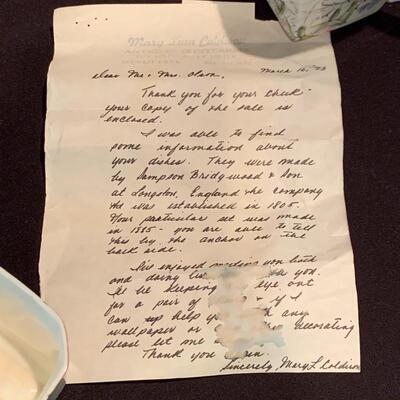 Mary Lynn
Dear Mr. Mrs. Olson, March 16, '83
Thank you for your check -
your copy of the sale is
enclosed.
I was able to find
some information about
your dishes. They were made
by Sampson Bridgwood & Son
at Longton, England the company
was established in 1805.
Your particular set was made
in 1885 - you are able to tell
this by the anchor on the
back side.
I've enjoyed meeting you both
and doing you.
I'll be keeping eye out
for a pair of If I
can help you any
wallpaper or decorating
please let me
Thank you
Sincerely, Mary L. Coldiron